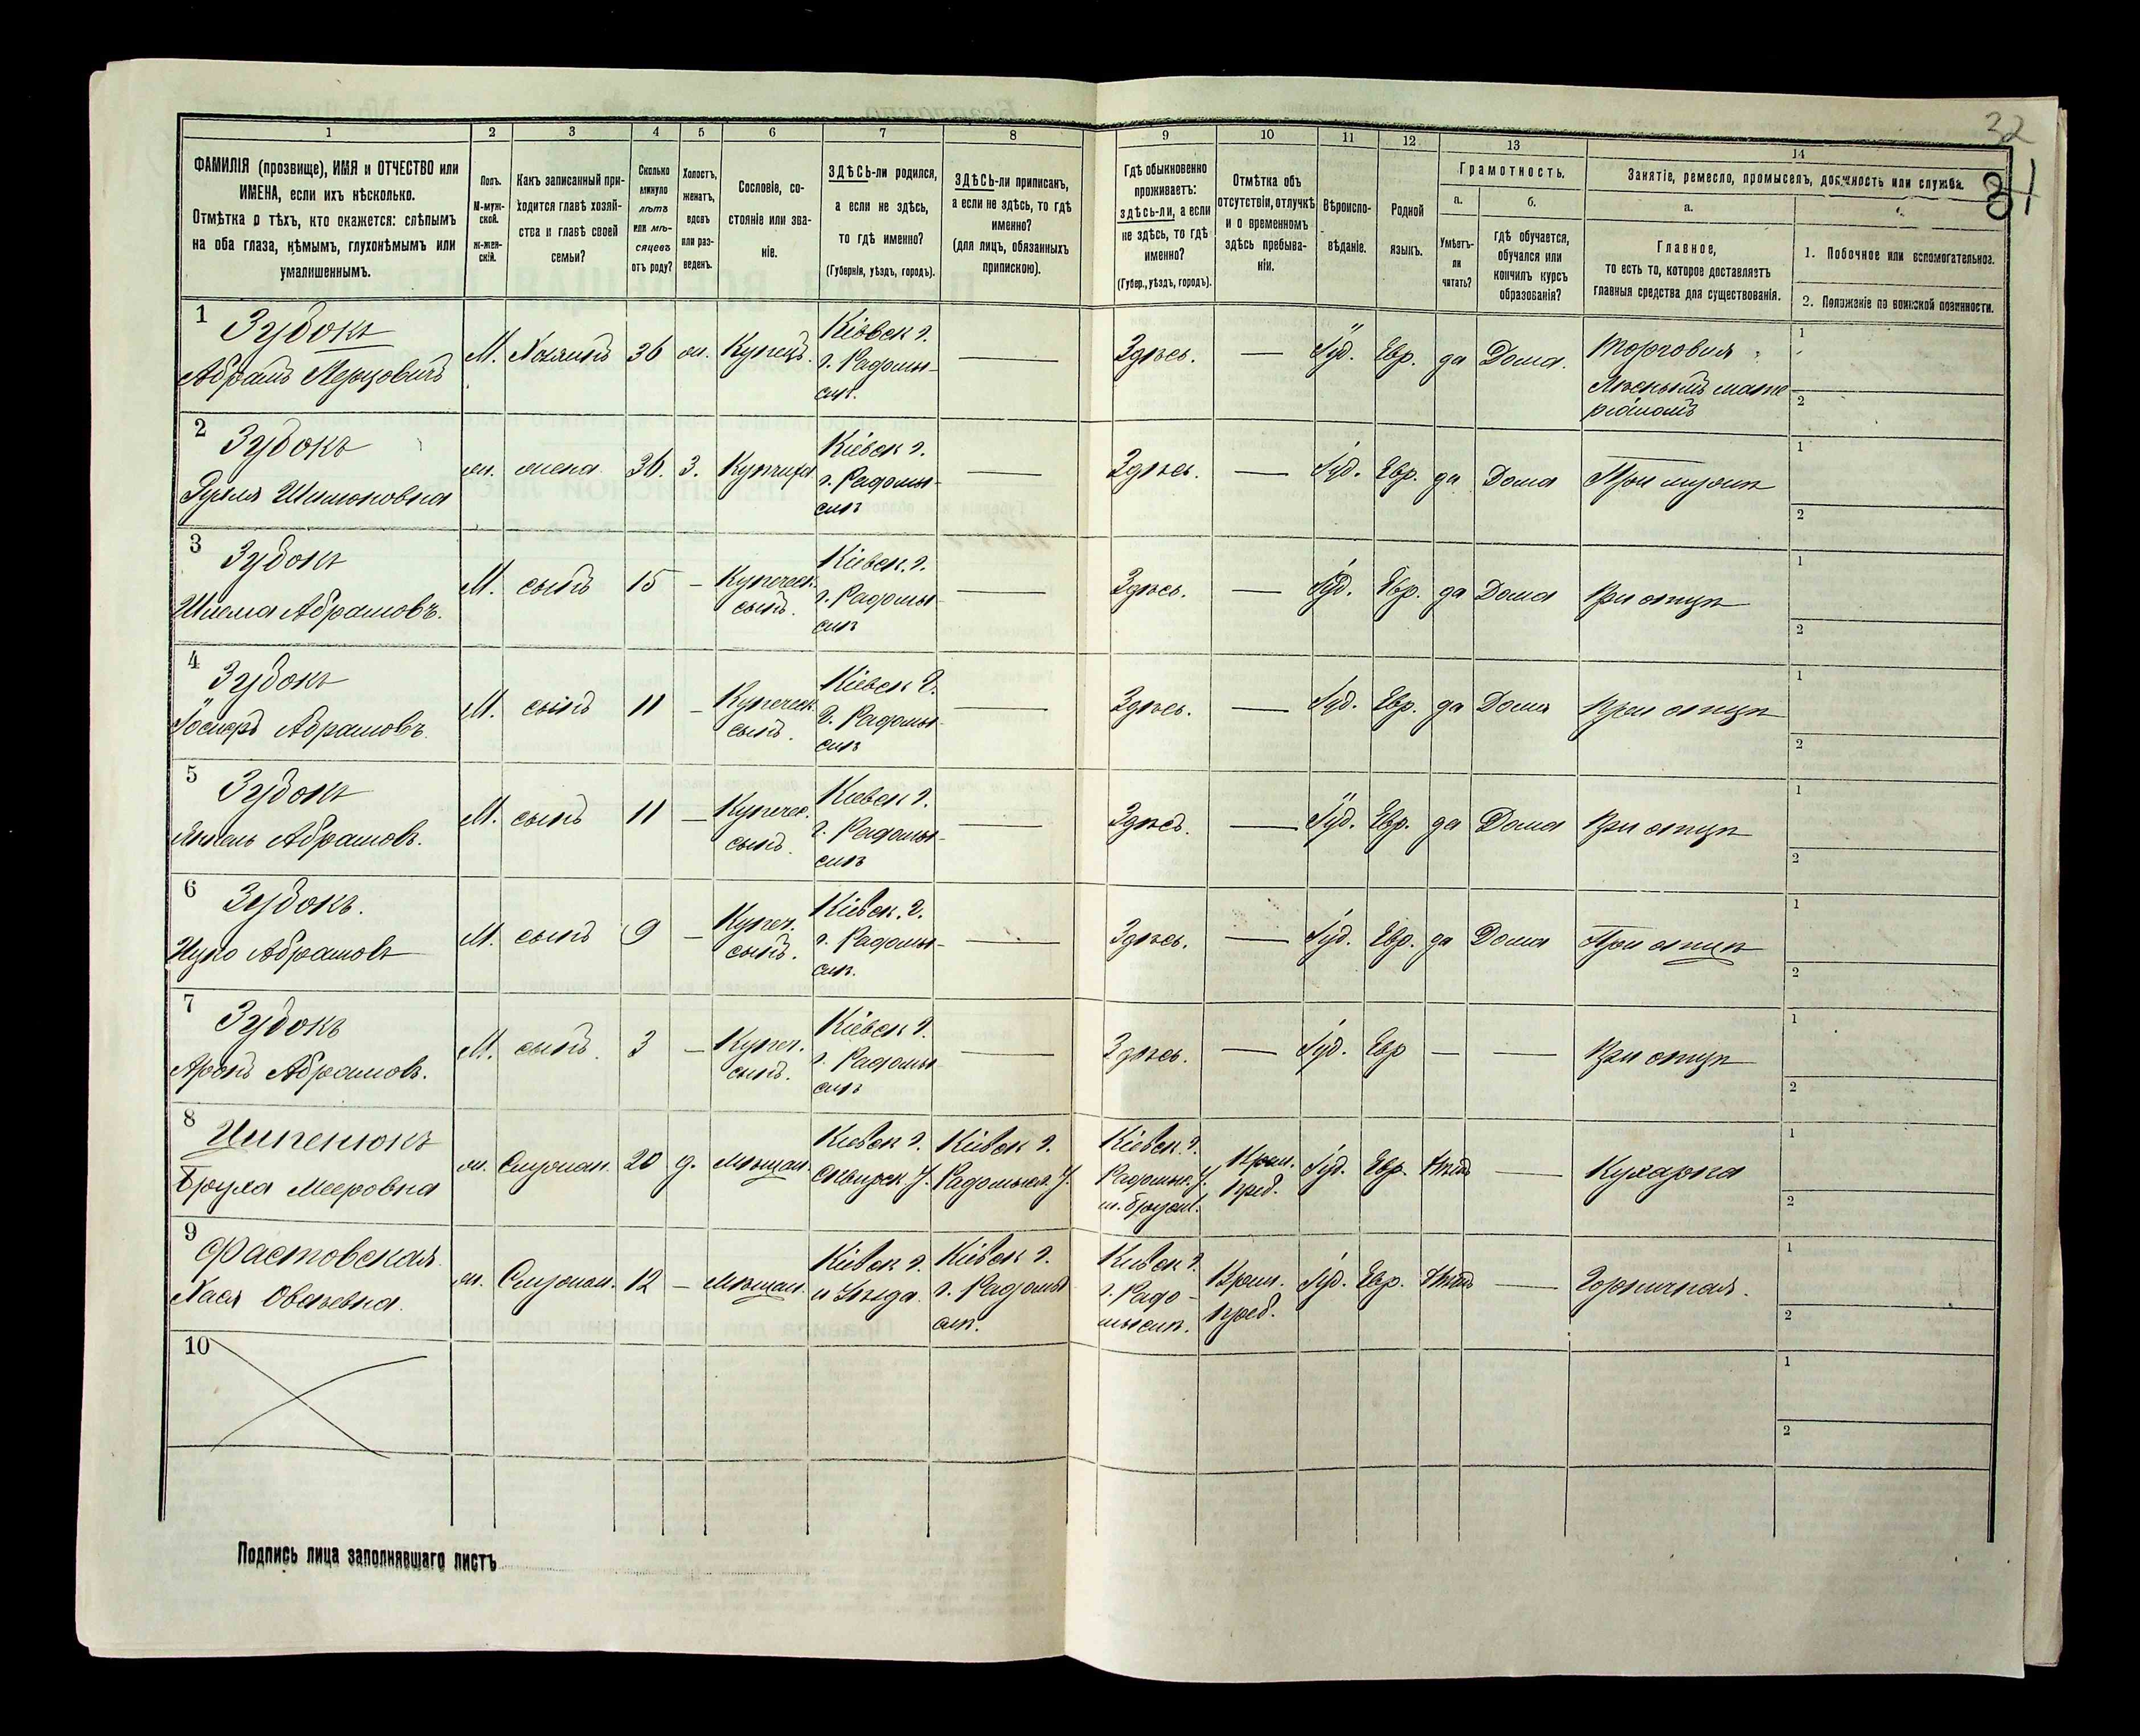 32
31
1
2
3
4
5
6
7
8
9
10
11
12
13
14
ФАМИЛІЯ (прозвище), ИМЯ и ОТЧЕСТВО или
ИМЕНА, если ихъ нѣсколько.
Отмѣтка о тѣхъ, кто окажется: слѣпымъ
на оба глаза, нѣмымъ, глухонѣмымъ или
умалишеннымъ.
Полъ.
М-муж-
ской.
ж-жен-
скій.
Какъ записанный при-
ходится главѣ хозяй-
ства и главѣ своей
семьи?
Сколько
минуло
лѣтъ
или мѣ-
сяцевъ
отъ роду?
Холостъ,
женатъ,
вдовъ
или раз-
веденъ.
Сословіе, со-
стояніе или зва-
ніе.
ЗДѢСЬ-ли родился,
а если не здѣсь,
то гдѣ именно?
(Губернія, уѣздъ, городъ).
ЗДѢСЬ-ли приписанъ,
а если не здѣсь, то гдѣ
именно?
(для лицъ, обязанныхъ
припискою).
Гдѣ обыкновенно
проживаетъ:
здѣсь-ли, а если
не здѣсь, то гдѣ
именно?
(Губер., уѣздъ, городъ).
Отмѣтка объ
отсутствіи, отлучкѣ
и о временномъ
здѣсь пребыва-
ніи.
Вѣроиспо-
вѣданіе.
Родной
языкъ.
Грамотность.
а.
Умѣетъ-
ли
читать?
б.
гдѣ обучается,
обучался или
кончилъ курсъ
образованія?
Занятіе, ремесло, промыселъ, должность или служба.
а.
Главное,
то есть то, которое доставляетъ
главныя средства для существованія.
1. Побочное или вспомогательное.
2. Положеніе по воинской повинности.
1 Зубокъ
Абрамъ Лейзовичъ М. Хозяинъ 36 ж. Купецъ. Кіевск г. г. Радомы- слѣ. — Здѣсь. — Іуд. Евр. да Дома. Торговля Лѣснымъ мате ріаломъ 1 2
2 Зубокъ
Рухля Шимоновна ж. жена 36. З. Купчиха Кіевск г. г. Радомы- слѣ — Здѣсь. — Іуд. Евр. да Дома При мужѣ 1 2
3 Зубокъ
Шлема Абрамовъ. М. сынъ 15 – Купеческ. сынъ. Кіевск. г. г. Радомы- слѣ — Здѣсь. — Іуд. Евр. да Дома При отцѣ 1 2
4 Зубокъ
Абрамовъ. М. сынъ 11 – Купеческ. сынъ. Кіевск г. г. Радомы- слѣ — Здѣсь. — Іуд. Евр. да Дома При отцѣ 1 2
5 Зубокъ
Янкель Абрамовъ. М. сынъ 11 – Купечес. сынъ. Кіевск г. г. Радомы- слѣ — Здѣсь. — Іуд. Евр. да Дома При отцѣ 1 2
6 Зубокъ.
Ицко Абрамовъ М. сынъ 9 – Купеч. сынъ. Кіевск. г. г. Радомы- слѣ. — Здѣсь. — Іуд. Евр. да Дома При отцѣ 1 2
7 Зубокъ
Аронъ Абрамовъ. М. сынъ. 3 – Купеч. сынъ. Кіевск г. г. Радомы- слѣ — Здѣсь. — Іуд. Евр — — При отцѣ 1 2
8 Ципенюкъ
Бруха Мееровна ж. Служан. 20 д. Мѣщан. Кіевск г. Сквирск. У. Кіевск г. Радомысл. У. Кіевск. г. Радомыс. У. м. Брусил. Врем. преб. Іуд. Евр. Нѣтъ — Кухарка 1 2
9 Фастовская
Хася Овсѣевна. ж. Служан. 12 – Мѣщан. Кіевск г. и Уѣзда. Кіевск г. г. Радомы слѣ. Кіевск г. г. Радо- мыслѣ. Врем. преб. Іуд. Евр. Нѣтъ — Горничная. 1 2
10 1 2
Подпись лица заполнявшаго листъ